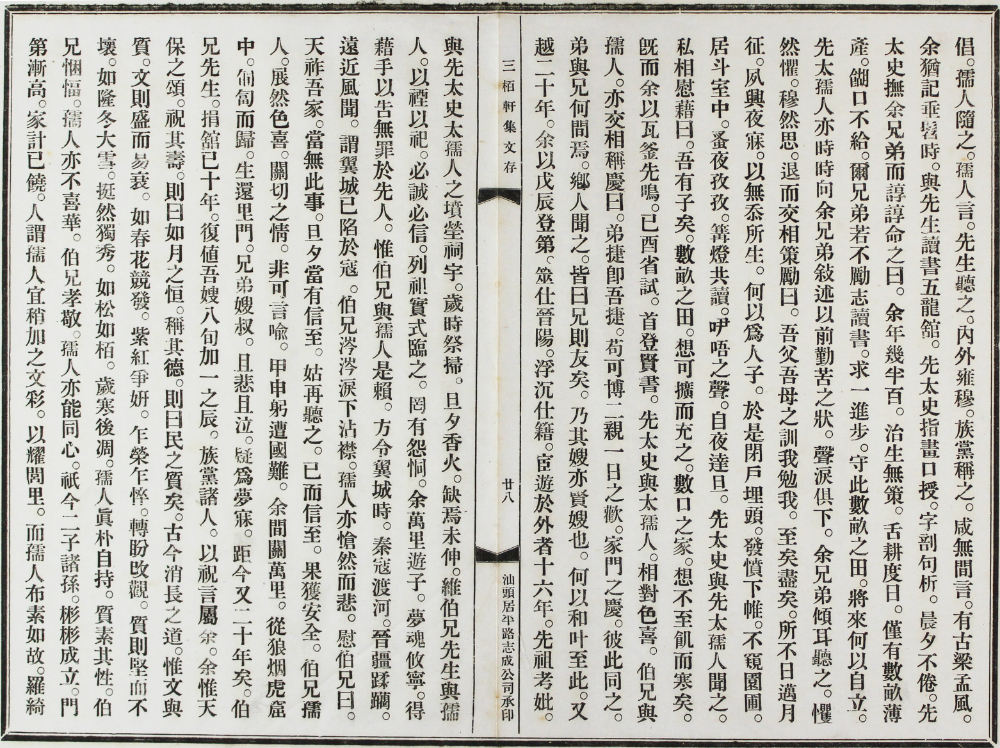 倡。孺人隨之。孺人言。先生聽之。內外雍穆。族黨稱之。咸無間言。有古梁孟風。
余猶記垂髫時。與先生讀書五龍舘。先太史指畫口授。字剖句析。晨夕不倦。先
太史撫余兄弟而諄諄命之曰。余年幾半百。治生無策。舌耕度日。僅有數畝薄
產。餬口不給。爾兄弟若不勵志讀書。求一進步。守此數畝之田。將來何以自立。
先太孺人亦時時向余兄弟敍述以前勤苦之狀。聲淚俱下。余兄弟傾耳聽之。懼
然懼。穆然思。退而交相策勵曰。吾父吾母之訓我勉我。至矣盡矣。所不日邁月
征。夙興夜寐。以無忝所生。何以爲人子。於是閉戶埋頭。發憤下帷。不窺園圃。
居斗室中。蚤夜孜孜。篝燈共讀。咿唔之聲。自夜達旦。先太史與先太孺人聞之。
私相慰藉曰。吾有子矣。數畝之田。想可擴而充之。數口之家。想不至飢而寒矣。
旣而余以瓦釜先鳴。已酉省試。首登賢書。先太史與太孺人。相對色喜。伯兄與
孺人。亦交相稱慶曰。弟捷卽吾捷。苟可博二親一日之歡。家門之慶。彼此同之。
弟與兄何間焉。鄉人聞之。皆曰兄則友矣。乃其嫂亦賢嫂也。何以和叶至此。又
越二十年。余以戊辰登第。筮仕晉陽。浮沉仕籍。宦遊於外者十六年。先祖考妣。
三栢軒集文存
廿八
汕頭居平路志成公司承印
與先太史太孺人之墳塋祠宇。歲時祭掃。旦夕香火。缺焉未伸。維伯兄先生與孺
人。以禋以祀。必誠必信。列祖實式臨之。罔有怨恫。余萬里遊子。夢魂攸寧。得
藉手以告無罪於先人。惟伯兄與孺人是賴。方令翼城時。秦寇渡河。晉疆蹂躪。
遠近風聞。謂翼城已陷於寇。伯兄涔涔淚下沾襟。孺人亦愴然而悲。慰伯兄曰。
天祚吾家。當無此事。旦夕當有信至。姑再聽之。已而信至。果獲安全。伯兄孺
人。展然色喜。關切之情。非可言喩。甲申躬遭國難。余間關萬里。從狼烟虎窟
中。匍匐而歸。生還里門。兄弟嫂叔。且悲且泣。疑爲夢寐。距今又二十年矣。伯
兄先生。捐舘已十年。復値吾嫂八旬加一之辰。族黨諸人。以祝言屬余。余惟天
保之頌。祝其壽。則曰如月之恒。稱其德。則曰民之質矣。古今消長之道。惟文與
質。文則盛而易衰。如春花競發。紫紅爭妍。乍榮乍悴。轉盼改觀。質則堅而不
壞。如隆冬大雪。挺然獨秀。如松如栢。歲寒後凋。孺人眞朴自持。質素其性。伯
兄悃愊。孺人亦不喜華。伯兄孝敬。孺人亦能同心。祇今二子諸孫。彬彬成立。門
第漸高。家計已饒。人謂孺人宜稍加之文彩。以耀閭里。而孺人布素如故。羅綺